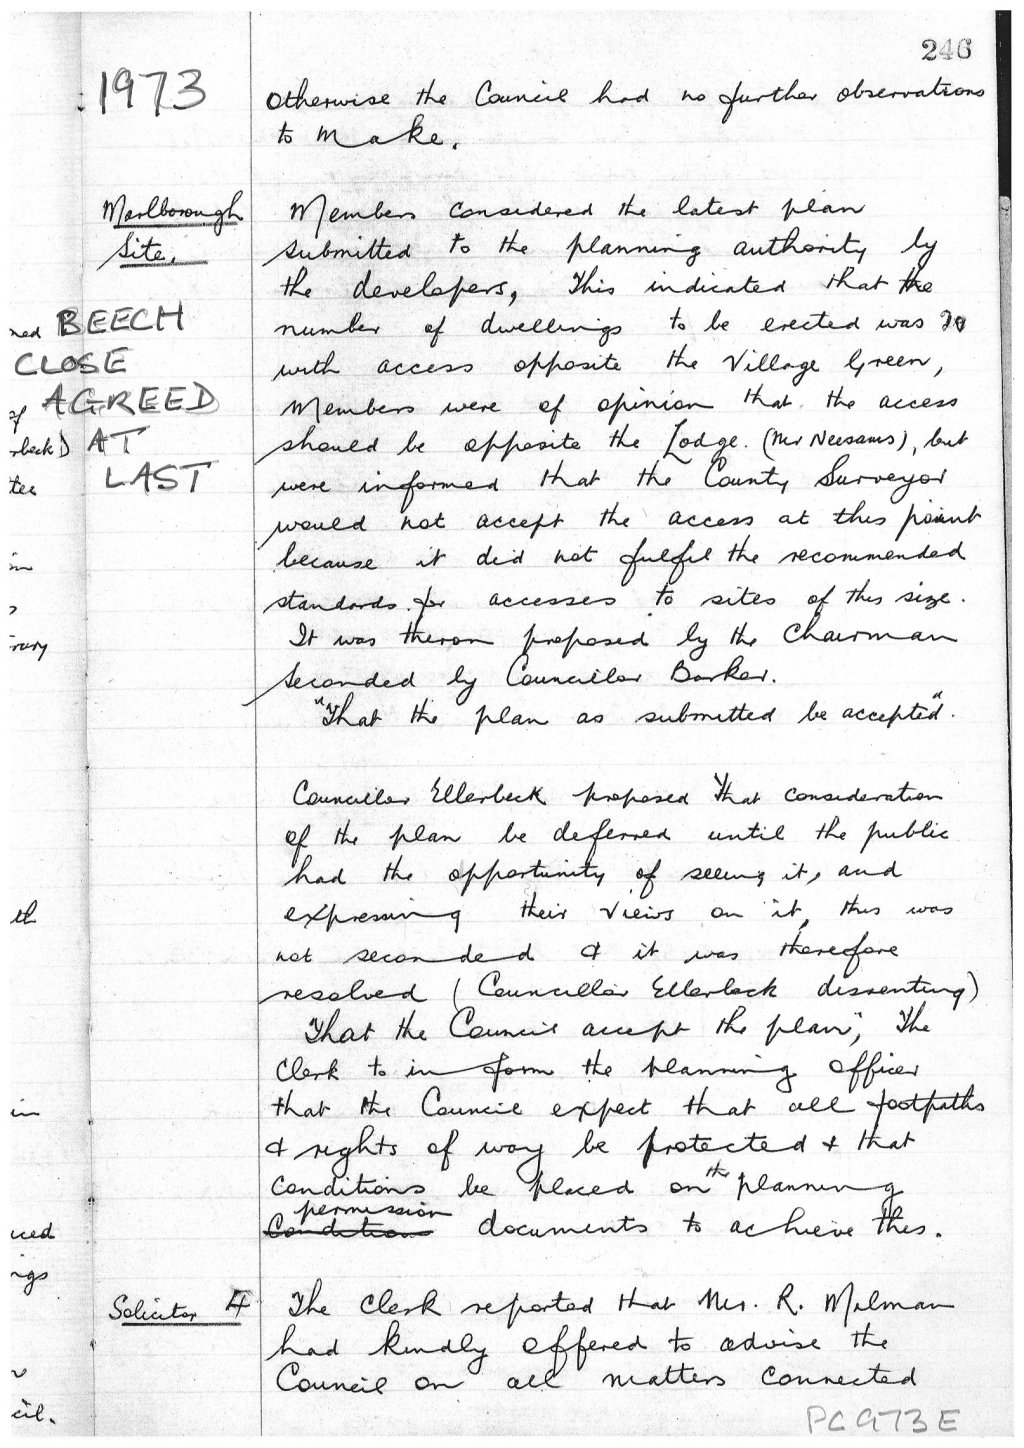 246
1973
otherwise the Council had no further observations
to make.
Marlborough
Site.
Members considered the latest plan
submitted to the planning authority by
the developers, This indicated that the
number of dwellings to be erected was
with access opposite the Village Green,
Members were of opinion that the access
should be opposite the Lodge. (Mr Neesams), but
were informed that the County Surveyor
would not accept the access at this point
because it did not fulfil the recommended
standards for accesses to sites of this size.
It was theron proposed by the Chairman
Seconded by Councillor Barker.
"That the plan as submitted be accepted".
BEECH
CLOSE
AGREED
AT
LAST
Councillor Ellerbeck proposed that consideration
of the plan be deferred until the public
had the opportunity of seeing it, and
expressing their views on it, this was
not seconded & it was therefore
resolved (Councillor Ellerbeck dissenting)
"That the Council accept the plan", The
Clerk to inform the planning officer
that the Council expect that all footpaths
& rights of way be protected & that
conditions be placed on the planning
permission
Condition documents to achieve this.
Solicitor 4
The Clerk reported that Mr. R. Milman
had kindly offered to advise the
Council on all matters connected
PC973E
ned
of
rbeck)
tee
in
rary
th
in
ued
ngs
cil.